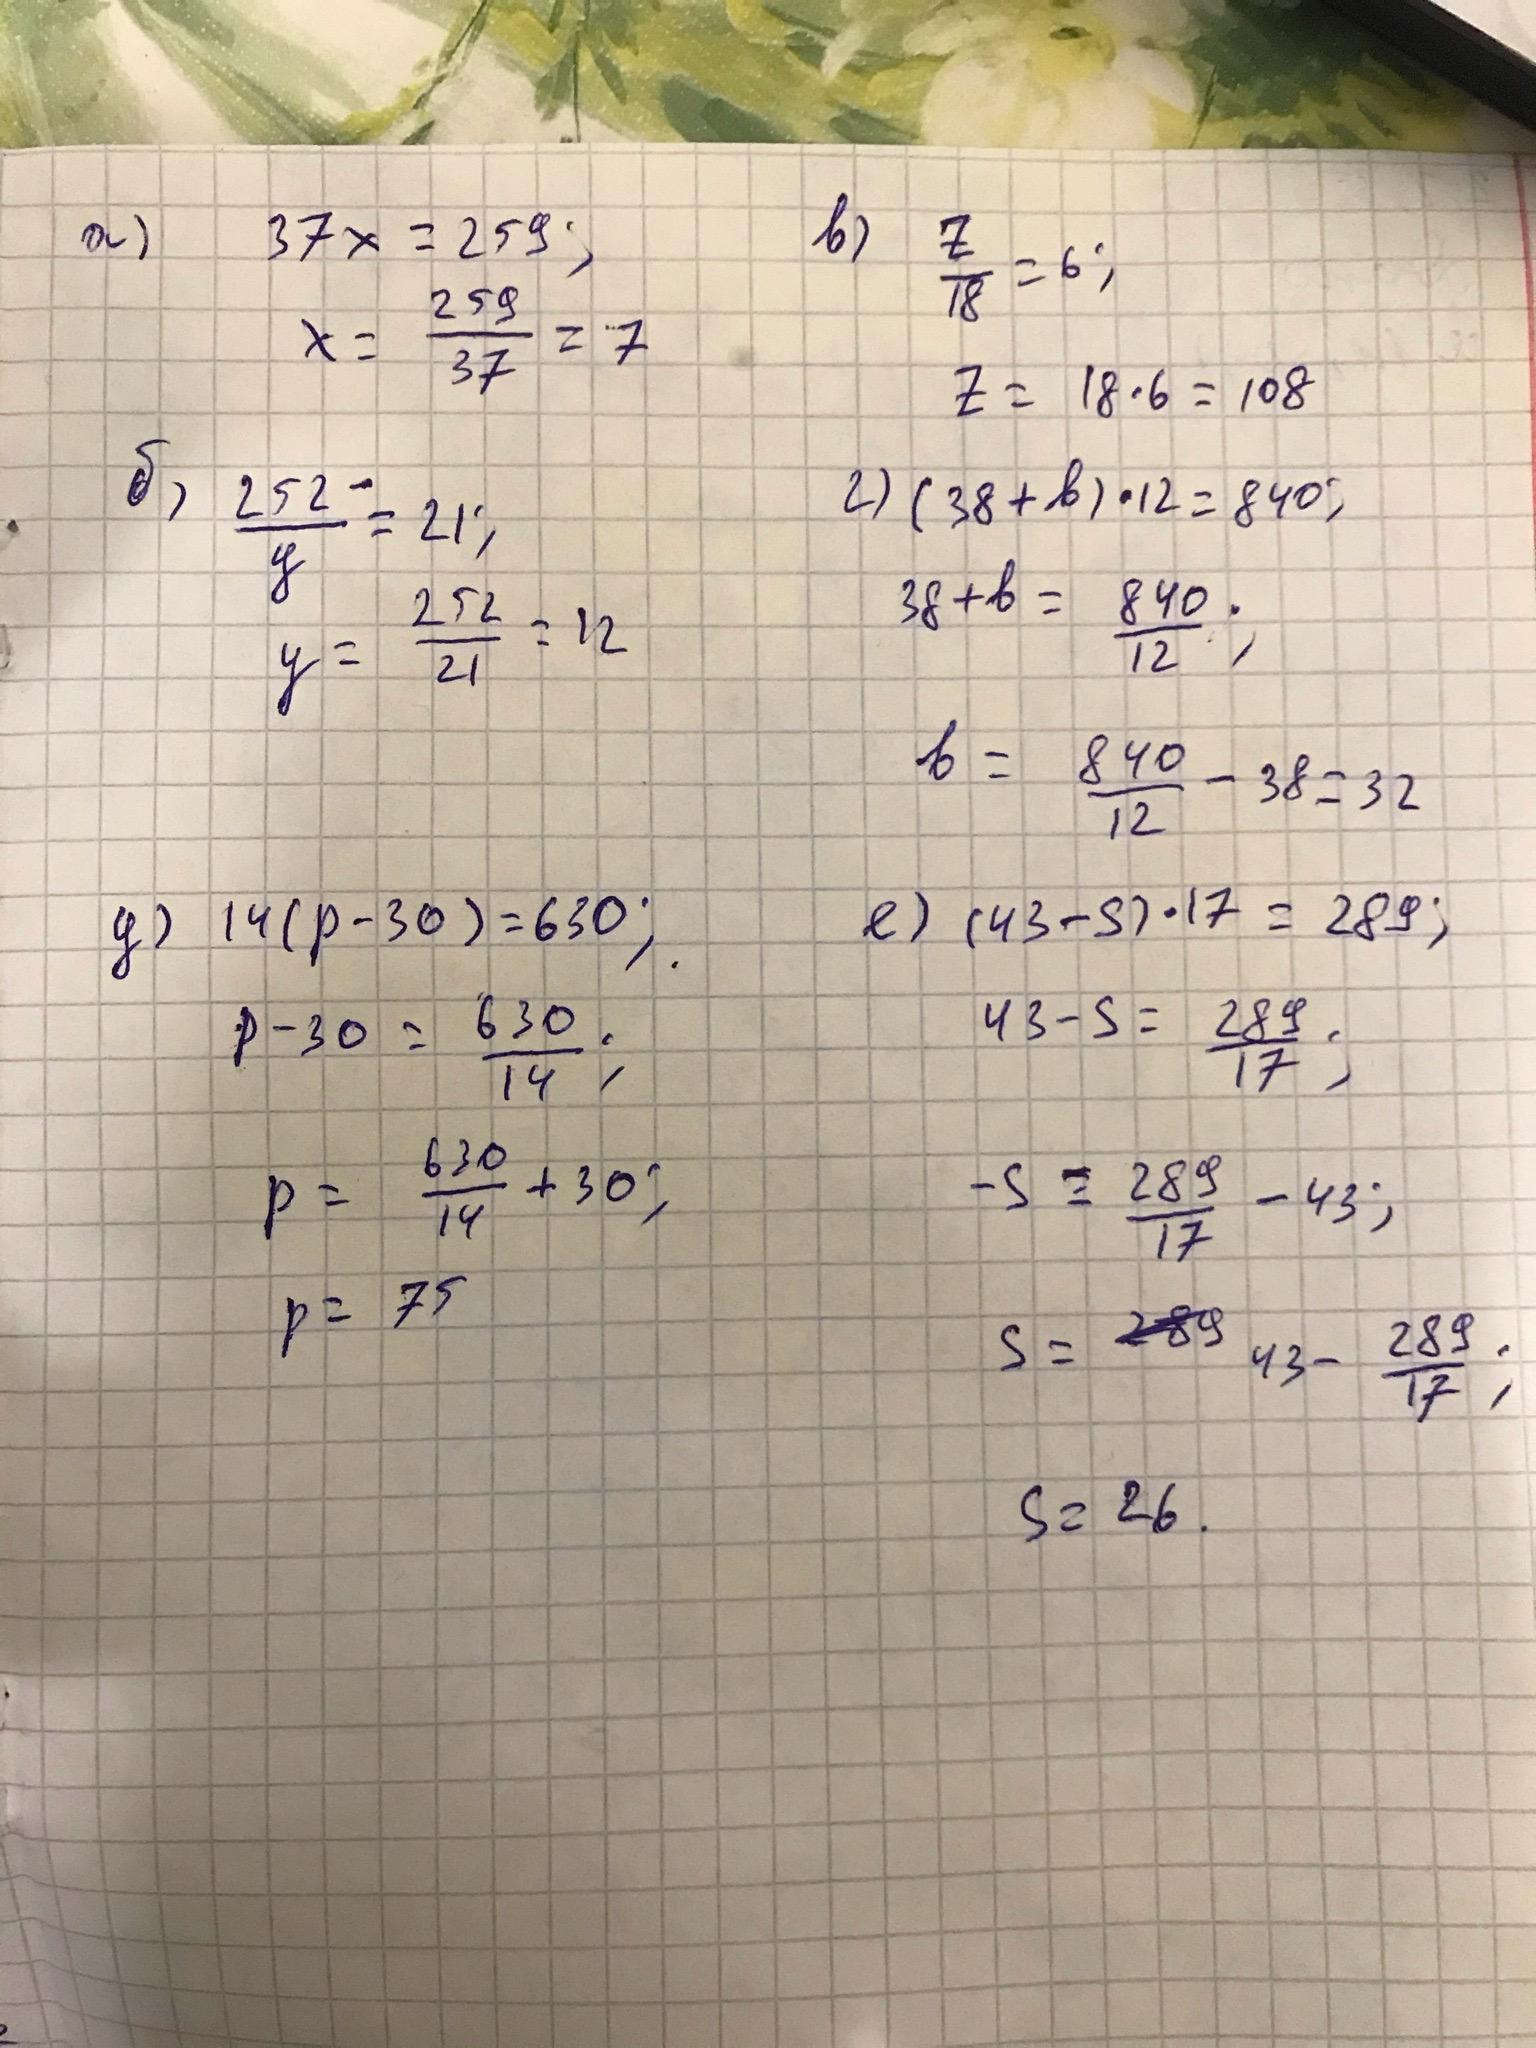 а) 37x = 259;
x = 259/37 = 7
б) 252/y = 21;
y = 252/21 = 12
в) z/18 = 6;
z = 18·6 = 108
г) (38+b)·12 = 840;
38+b = 840/12;
b = 840/12 - 38 = 32
д) 14(p-30) = 630;
p-30 = 630/14;
p = 630/14 + 30;
p = 75
е) (43-s)·17 = 289;
43-s = 289/17;
-s = 289/17 - 43;
s = 289 43 - 289/17;
s = 26.